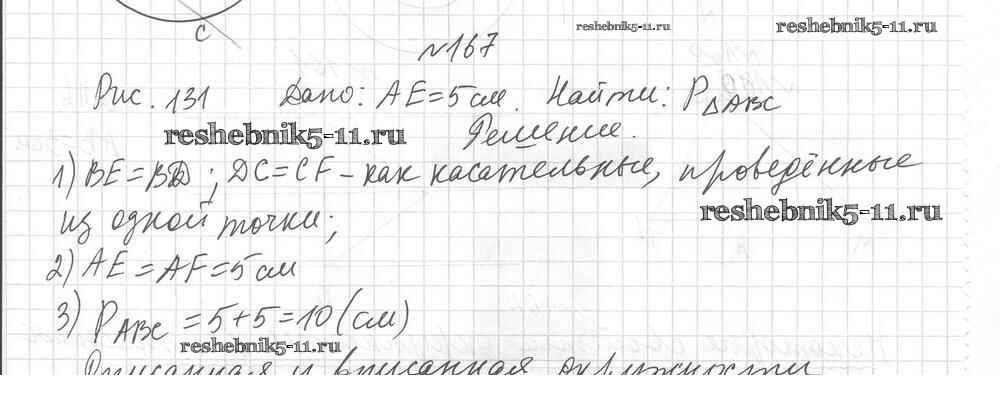 C
reshebnik5-11.ru
reshebnik5-11.ru
№167
Рис. 131 Дано: AE=5см. Найти: P△ABC
reshebnik5-11.ru
Решение.
1) BE=BD; DC=CF – как касательные, проведённые
reshebnik5-11.ru
из одной точки;
2) AE=AF=5см
3) PABC=5+5=10(см)
reshebnik5-11.ru
Описанная и вписанная окружности